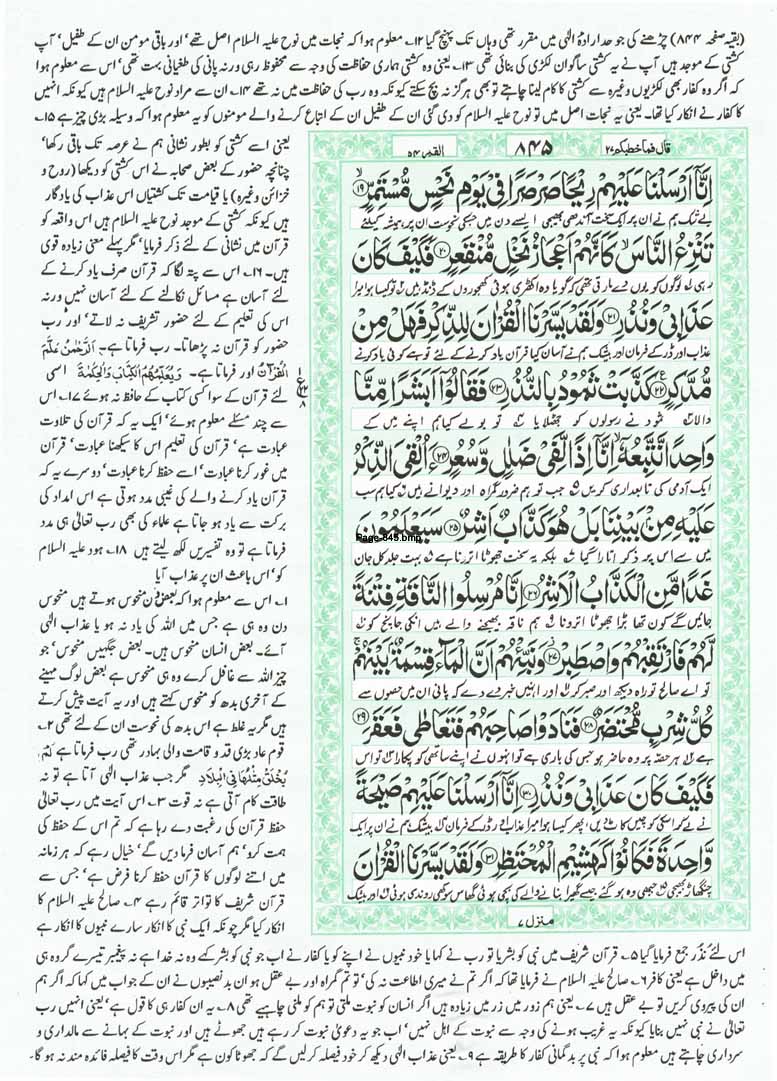 (بقیہ صفحہ ۸۴۴) چڑھنے کی جو حد ارادہ الٰہی میں مقرر تھی وہاں تک پہنچ گیا ۱۲۔ معلوم ہوا کہ نجات میں نوح علیہ السلام اصل تھے‘ اور باقی مومن ان کے طفیل‘ آپ
کشتی کے موجد ہیں آپ نے یہ کشتی ساگوان لکڑی کی بنائی تھی ۱۳۔ یعنی وہ کشتی ہماری حفاظت کی وجہ سے محفوظ رہی ورنہ پانی کی طغیانی بہت تھی‘ اس سے معلوم ہوا
کہ اگر وہ کفار بھی لکڑیوں وغیرہ سے کشتی کا کام لینا چاہتے تو بھی ہرگز نہ بچ سکتے کیونکہ وہ رب کی حفاظت میں نہ تھے ۱۴۔ ان سے مراد نوح علیہ السلام ہیں کیونکہ انہیں
کا کفار نے انکار کیا تھا۔ یعنی یہ نجات اصل میں تو نوح علیہ السلام کو دی گئی ان کے طفیل ان کے اتباع کرنے والے مومنوں کو یہ معلوم ہوا کہ وسیلہ بڑی چیز ہے ۱۵۔
قال فما خطبکم ۲۷
۸۴۵
القمر ۵۴
اِنَّاۤ اَرْسَلْنَا عَلَیْهِمْ رِیْحًا صَرْصَرًا فِیْ یَوْمِ نَحْسٍ مُّسْتَمِرٍّ ۱۹
بے شک ہم نے ان پر ایک سخت آندھی بھیجی ایسے دن میں جس کی نحوست ان پر ہمیشہ کیلئے
تَنْزِعُ النَّاسَ كَاَنَّهُمْ اَعْجَازُ نَخْلٍ مُّنْقَعِرٍ ۲۰ فَكَیْفَ كَانَ
رہی لوگوں کو یوں دے مارتی تھی کہ گویا وہ اکھڑی ہوئی کھجوروں کے ڈنڈ ہیں تو کیسا ہوا میرا
عَذَابِیْ وَنُذُرِ ۲۱ وَلَقَدْ یَسَّرْنَا الْقُرْاٰنَ لِلذِّكْرِ فَهَلْ مِنْ
عذاب اور ڈر کے فرمان اور بیشک ہم نے آسان کیا قرآن یاد کرنے کے لئے تو ہے کوئی یاد کرنے
مُّدَّكِرٍ ۲۲ كَذَّبَتْ ثَمُوْدُ بِالنُّذُرِ ۲۳ فَقَالُوْۤا اَبَشَرًا مِّنَّا
والا ثمود نے رسولوں کو جھٹلایا تو بولے کیا ہم اپنے میں کے
وَاحِدًا نَّتَّبِعُهٗۤ اِنَّاۤ اِذًا لَّفِیْ ضَلٰلٍ وَّسُعُرٍ ۲۴ ءَاُلْقِیَ الذِّكْرُ
ایک آدمی کی تابعداری کریں جب تو ہم ضرور گمراہ اور دیوانے ہیں کیا ہم سب
عَلَیْهِ مِنْۢ بَیْنِنَا بَلْ هُوَ كَذَّابٌ اَشِرٌ ۲۵ سَیَعْلَمُوْنَ
میں سے اس پر ذکر اتارا گیا بلکہ یہ سخت جھوٹا اترونا ہے بہت جلد کل جان
Page-845.bmp
غَدًا مَّنِ الْكَذَّابُ الْاَشِرُ ۲۶ اِنَّا مُرْسِلُوا النَّاقَةِ فِتْنَةً
جائیں گے کون تھا بڑا جھوٹا اترونا ہم ناقہ بھیجنے والے ہیں انکی جانچ کو
لَّهُمْ فَارْتَقِبْهُمْ وَاصْطَبِرْ ۲۷ وَنَبِّئْهُمْ اَنَّ الْمَآءَ قِسْمَةٌۢ بَیْنَهُمْ
تو اے صالح تو راہ دیکھ اور صبر کر اور انہیں خبر دے دے کہ پانی ان میں حصوں سے
كُلُّ شِرْبٍ مُّحْتَضَرٌ ۲۸ فَنَادَوْا صَاحِبَهُمْ فَتَعَاطٰی فَعَقَرَ ۲۹
ہے ہر حصہ پر وہ حاضر ہو جس کی باری ہے تو انہوں نے اپنے ساتھی کو پکارا تو اس
فَكَیْفَ كَانَ عَذَابِیْ وَنُذُرِ ۳۰ اِنَّاۤ اَرْسَلْنَا عَلَیْهِمْ صَیْحَةً
نے لے کر اسکی کونچیں کاٹ دیں پھر کیسا ہوا میرا عذاب اور ڈر کے فرمان بیشک ہم نے ان پر ایک
وَّاحِدَةً فَكَانُوْا كَهَشِیْمِ الْمُحْتَظِرِ ۳۱ وَلَقَدْ یَسَّرْنَا الْقُرْاٰنَ
چنگھاڑ بھیجی جبھی وہ ہو گئے جیسے گھیرا بنانے والے کی بچی ہوئی گھاس سوکھی روندی ہوئی اور بیشک
منزل ۷
یعنی اسے کشتی کو بطور نشانی ہم نے عرصہ تک باقی رکھا‘
چنانچہ حضور کے بعض صحابہ نے اس کشتی کو دیکھا (روح و
خزائن وغیرہ) یا قیامت تک کشتیاں اس عذاب کی یادگار
ہیں کیونکہ کشتی کے موجد نوح علیہ السلام ہیں اس واقعہ کو
قرآن میں نشانی کے لئے ذکر فرمایا‘ مگر پہلے معنی زیادہ قوی
ہیں۔ ۱۶۔ اس سے پتہ لگا کہ قرآن صرف یاد کرنے کے
لئے آسان ہے مسائل نکالنے کے لئے آسان نہیں ورنہ
اس کی تعلیم کے لئے حضور تشریف نہ لاتے‘ اور رب
حضور کو قرآن نہ پڑھاتا۔ رب فرماتا ہے۔ اَلرَّحْمٰنُ عَلَّمَ
الْقُرْاٰنَ اور فرماتا ہے۔ وَیُعَلِّمُهُمُ الْكِتَابَ وَالْحِكْمَةَ اسی
لئے قرآن کے سوا کسی کتاب کے حافظ نہ ہوئے ۱۷۔ اس
سے چند مسئلے معلوم ہوئے‘ ایک یہ کہ قرآن کی تلاوت
عبادت ہے‘ قرآن کی تعلیم اس کا سیکھنا عبادت‘ قرآن
میں غور کرنا عبادت‘ اسے حفظ کرنا عبادت‘ دوسرے یہ کہ
قرآن یاد کرنے والے کی غیبی مدد ہوتی ہے اس امداد کی
برکت سے یاد ہو جاتا ہے علماء کی بھی رب تعالیٰ ہی مدد
فرماتا ہے تو وہ تفسیریں لکھ لیتے ہیں ۱۸۔ ہود علیہ السلام
کو‘ اس باعث ان پر عذاب آیا
۱۔ اس سے معلوم ہوا کہ بعض دن منحوس ہوتے ہیں منحوس
دن وہ ہی ہے جس میں اللہ کی یاد نہ ہو یا عذاب الٰہی
آئے۔ بعض انسان منحوس ہیں۔ بعض جگہیں منحوس‘ جو
چیز اللہ سے غافل کرے وہ ہی منحوس ہے بعض لوگ مہینے
کے آخری بدھ کو منحوس کہتے ہیں اور یہ آیت پیش کرتے
ہیں مگر یہ غلط ہے اس بدھ کی نحوست ان کے لئے تھی ۲۔
قوم عاد بڑی قد و قامت والی بہادر تھی رب فرماتا ہے لَمْ
یُخْلَقْ مِثْلُهَا فِی الْبِلَادِ مگر جب عذاب الٰہی آتا ہے تو نہ
طاقت کام آتی ہے نہ قوت ۳۔ اس آیت میں رب تعالیٰ
حفظ قرآن کی رغبت دے رہا ہے کہ تم اس کے حفظ کی
ہمت کرو‘ ہم آسان فرما دیں گے‘ خیال رہے کہ ہر زمانہ
میں اتنے لوگوں کا قرآن حفظ کرنا فرض ہے‘ جس سے
قرآن شریف کا تواتر قائم رہے ۴۔ صالح علیہ السلام کا
انکار کیا مگر چونکہ ایک نبی کا انکار سارے نبیوں کا انکار ہے
اس لئے نذر جمع فرمایا گیا ۵۔ قرآن شریف میں نبی کو بشر یا تو رب نے کہا یا خود نبیوں نے اپنے کو یا کفار نے اب جو نبی کو بشر کہے وہ نہ خدا ہے نہ پیغمبر تیسرے گروہ ہی
میں داخل ہے یعنی کافر ۶۔ صالح علیہ السلام نے فرمایا تھا کہ اگر تم نے میری اطاعت نہ کی‘ تو تم گمراہ اور بے عقل ہو ان بد نصیبوں نے ان کے جواب میں کہا کہ اگر ہم
ان کی پیروی کریں تو بے عقل ہیں ۷۔ یعنی ہم زور میں زر میں زیادہ ہیں اگر انسان کو نبوت ملتی تو ہم کو ملنی چاہیے تھی ۸۔ یہ ان کفار ہی کا قول ہے‘ یعنی انہیں رب
تعالیٰ نے نبی نہیں بنایا کیونکہ یہ غریب ہونے کی وجہ سے نبوت کے اہل نہیں‘ اب جو یہ دعویٰ نبوت کر رہے ہیں جھوٹے ہیں اور نبوت کے بہانے سے مالداری و
سرداری چاہتے ہیں معلوم ہوا کہ نبی پر بدگمانی کفار کا طریقہ ہے ۹۔ یعنی عذاب الٰہی دیکھ کر خود فیصلہ کر لیں گے کہ جھوٹا کون ہے مگر اس وقت کا فیصلہ فائدہ مند نہ ہو گا۔